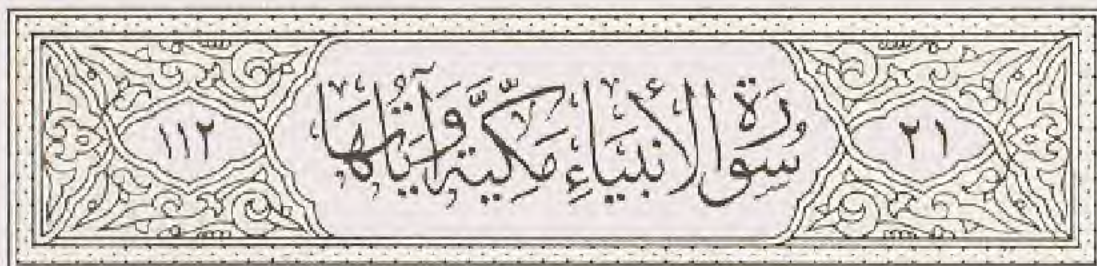 ٢١ سُورَةُ الأَنبيَاءِ مَكِّيَّة وَآيَاتُهَا ١١٢